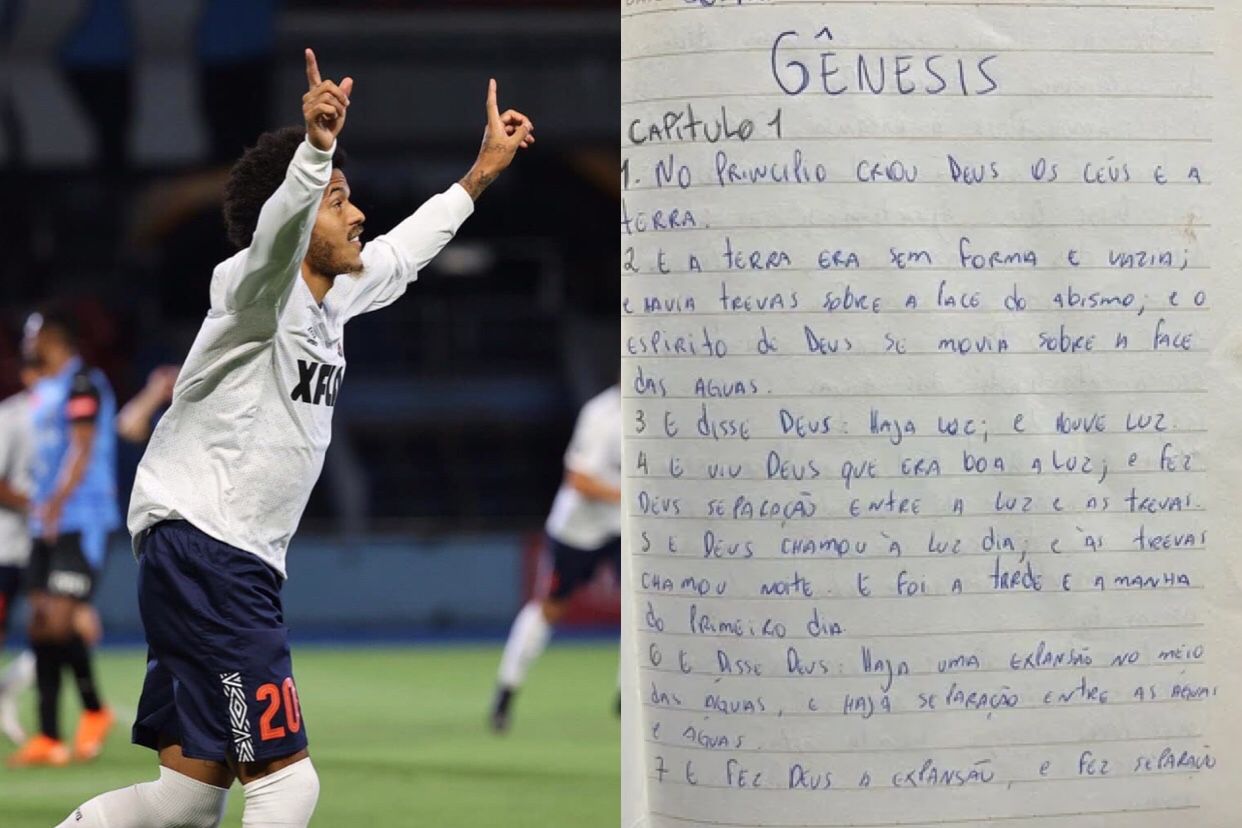 XFL
20
GÊNESIS
CAPÍTULO 1
1. NO PRINCIPIO CRIOU DEUS OS CÉUS E A
TERRA.
2 E A TERRA ERA SEM FORMA E VAZIA;
E HAVIA TREVAS SOBRE A FACE DO ABISMO; E O
ESPIRITO DE DEUS SE MOVIA SOBRE A FACE
DAS AGUAS.
3 E DISSE DEUS: HAJA LUZ; E HOUVE LUZ.
4 E VIU DEUS QUE ERA BOA A LUZ; E FEZ
DEUS SEPARAÇÃO ENTRE A LUZ E AS TREVAS.
5 E DEUS CHAMOU À LUZ DIA; E ÀS TREVAS
CHAMOU NOITE. E FOI A TARDE E A MANHA
DO PRIMEIRO DIA.
6 E DISSE DEUS: HAJA UMA EXPANSÃO NO MEIO
DAS ÁGUAS, E HAJA SEPARAÇÃO ENTRE AS ÁGUAS
E AGUAS.
7 E FEZ DEUS A EXPANSÃO, E FEZ SEPARAÇÃO